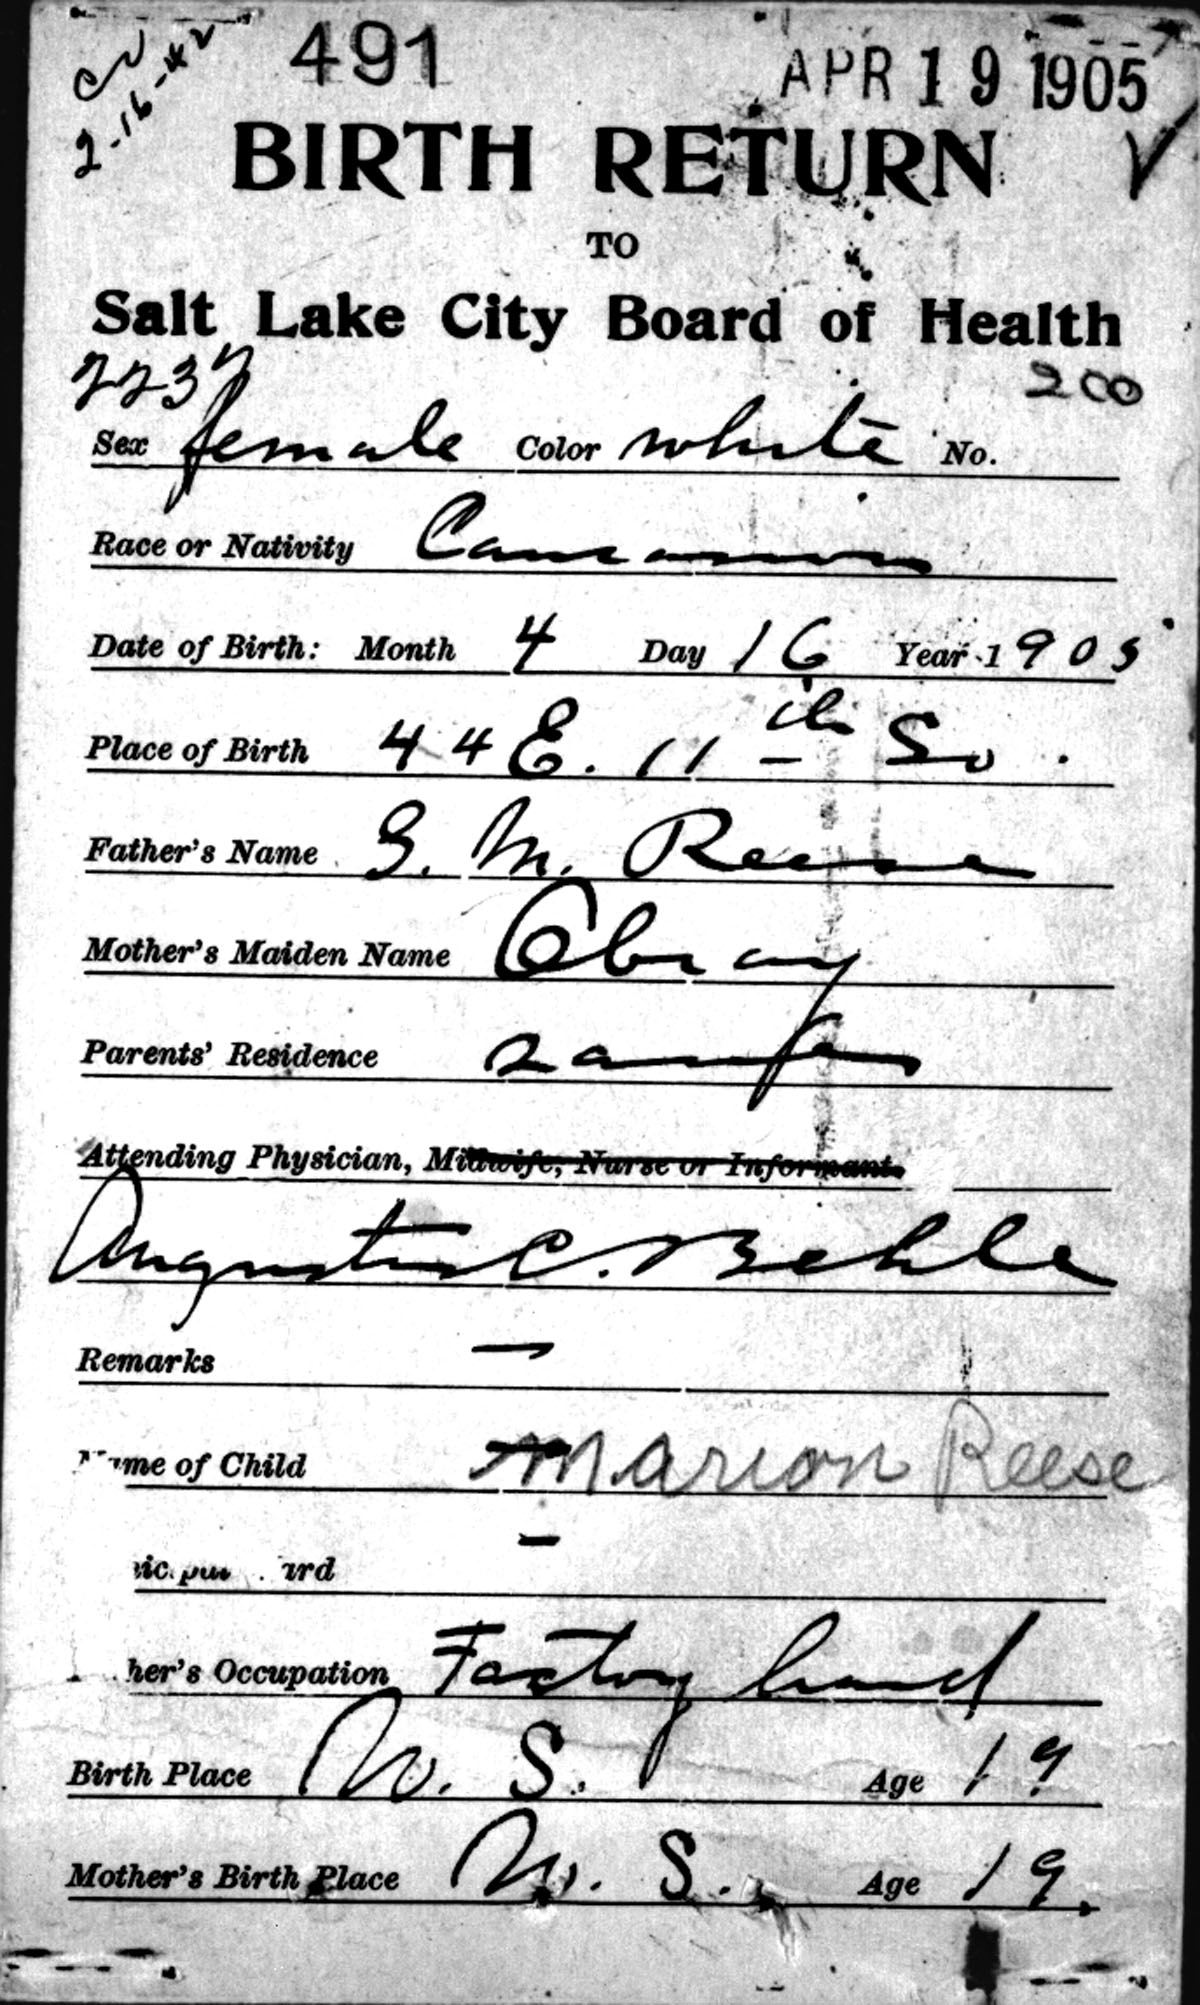 2-16-42
491 APR 19 1905
BIRTH RETURN
TO
Salt Lake City Board of Health
2237 200
Sex female Color white No.
Race or Nativity Caucasian
Date of Birth: Month 4 Day 16 Year 1905
Place of Birth 44 E. 11th So.
Father's Name G. M. Reese
Mother's Maiden Name Obray
Parents' Residence same
Attending Physician, Midwife, Nurse or Informant.
Augustus C. Behle
Remarks —
Name of Child Marion Reese
her's Occupation Factory hand
Birth Place U. S. Age 19
Mother's Birth Place U. S. Age 19.